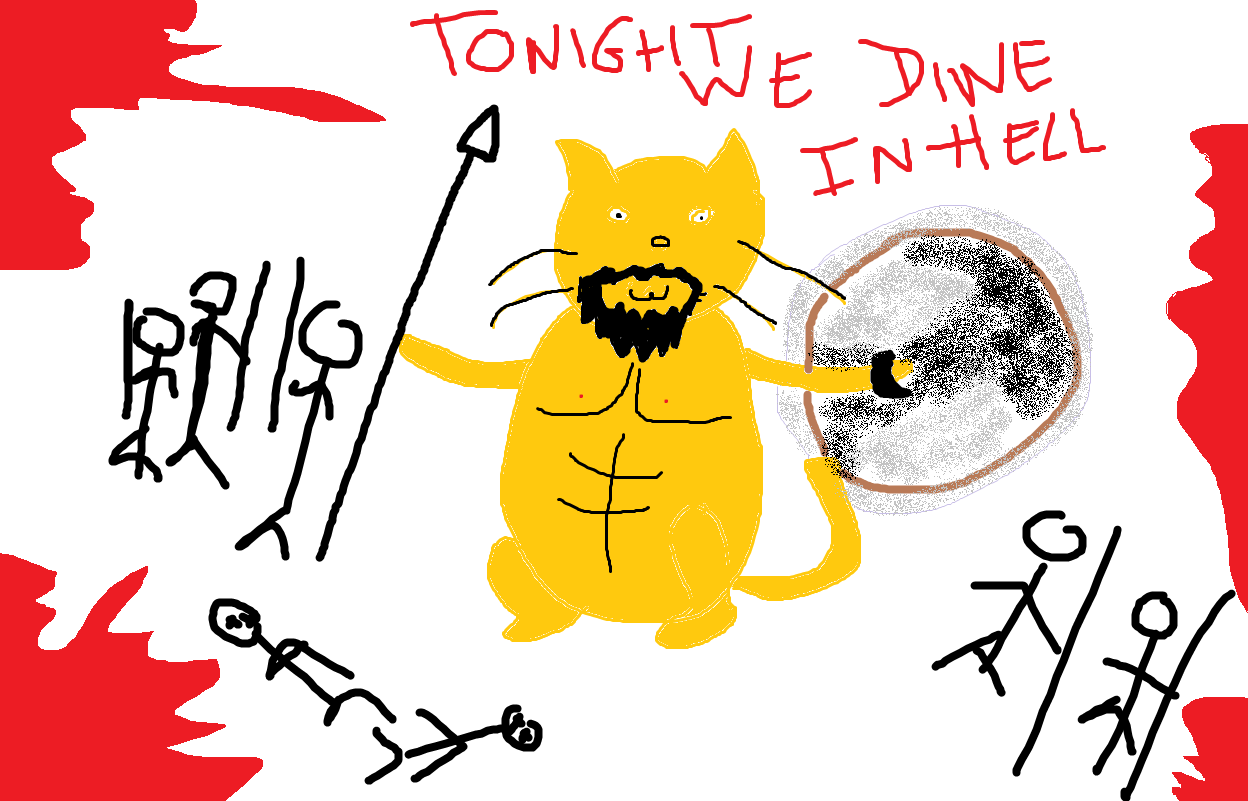 TONIGHT
WE DINE
IN HELL